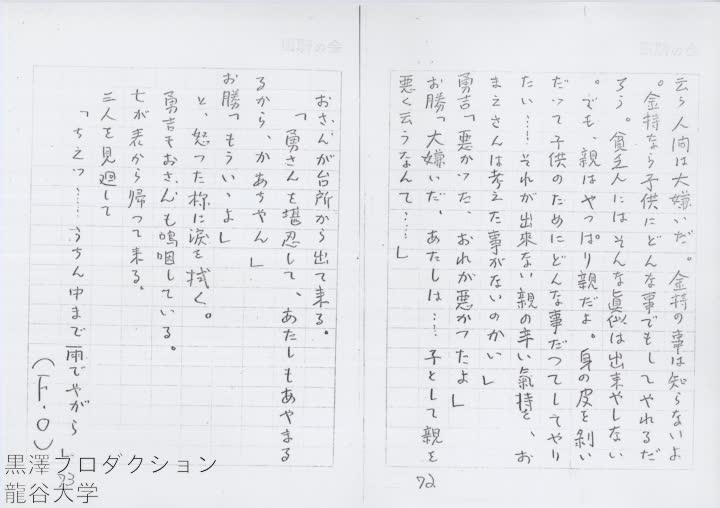 云う人間は大嫌いだ。金持の事は知らないよ
。金持なら子供にどんな事でもしてやれるだ
ろう。貧乏人にはそんな眞似は出来やしない
。でも、親はやっぱり親だよ。身の皮を剥い
だって子供のためにどんな事だってしてやり
たい……それが出来ない親の辛い氣持を、お
まえさんは考えた事がないのかい」
勇吉「悪かった、おれが悪かったよ」
お勝「大嫌いだ、あたしは……子として親を
悪く云うなんて……」
72
おさんが台所から出て来る。
「勇さんを堪忍して、あたしもあやまる
るから、かあちゃん」
お勝「もういゝよ」
と、怒った様に涙を拭く。
勇吉もおさんも嗚咽している。
七が表から帰って来る。
三人を見廻して
「ちえッ……うちん中まで雨でやがら」
(F・O)
73
黒澤プロダクション
龍谷大学